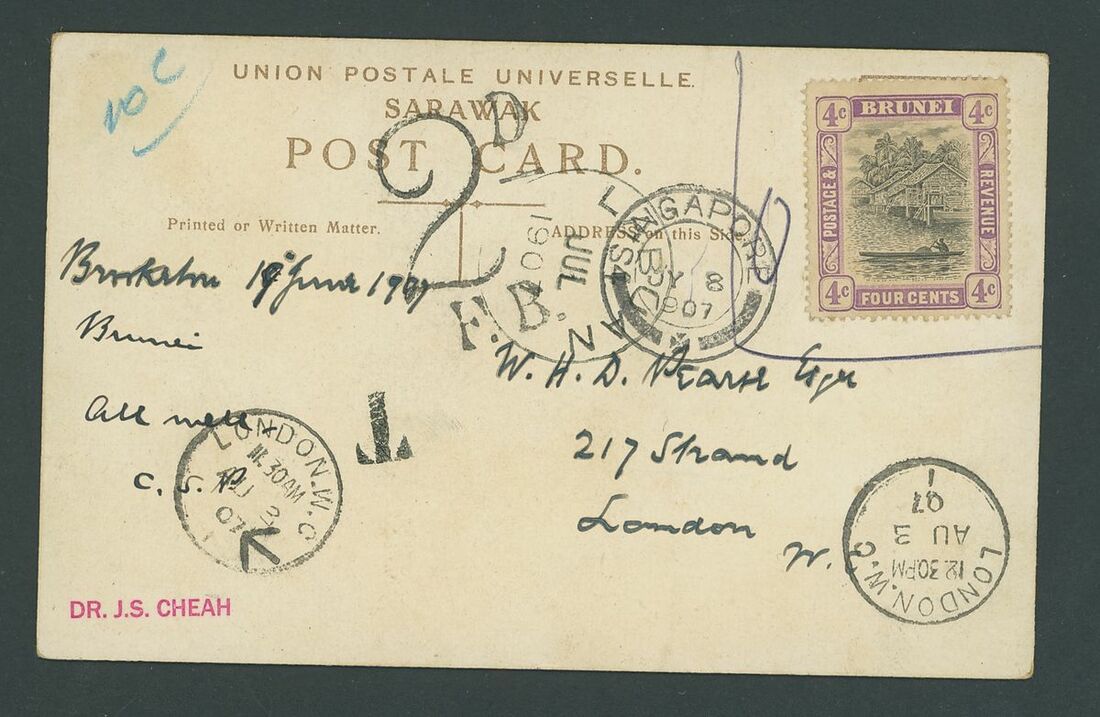 10 C
UNION POSTALE UNIVERSELLE.
SARAWAK
POST CARD.
Printed or Written Matter.
ADDRESS on this Side.
4c BRUNEI 4c
POSTAGE &
REVENUE
4c FOUR CENTS 4c
2D
F.B.
LABUAN
JUL
1907
SINGAPORE
B
JY 8
1907
Brooketon 19 June 1907
Brunei
All well
C. S. P.
W. H. D. Pearse Esqr
217 Strand
London
W.C.
T
LONDON.W.C
11.30AM
AU 3
07
LONDON.W.C
12.30PM
AU 3
07
1
DR. J.S. CHEAH